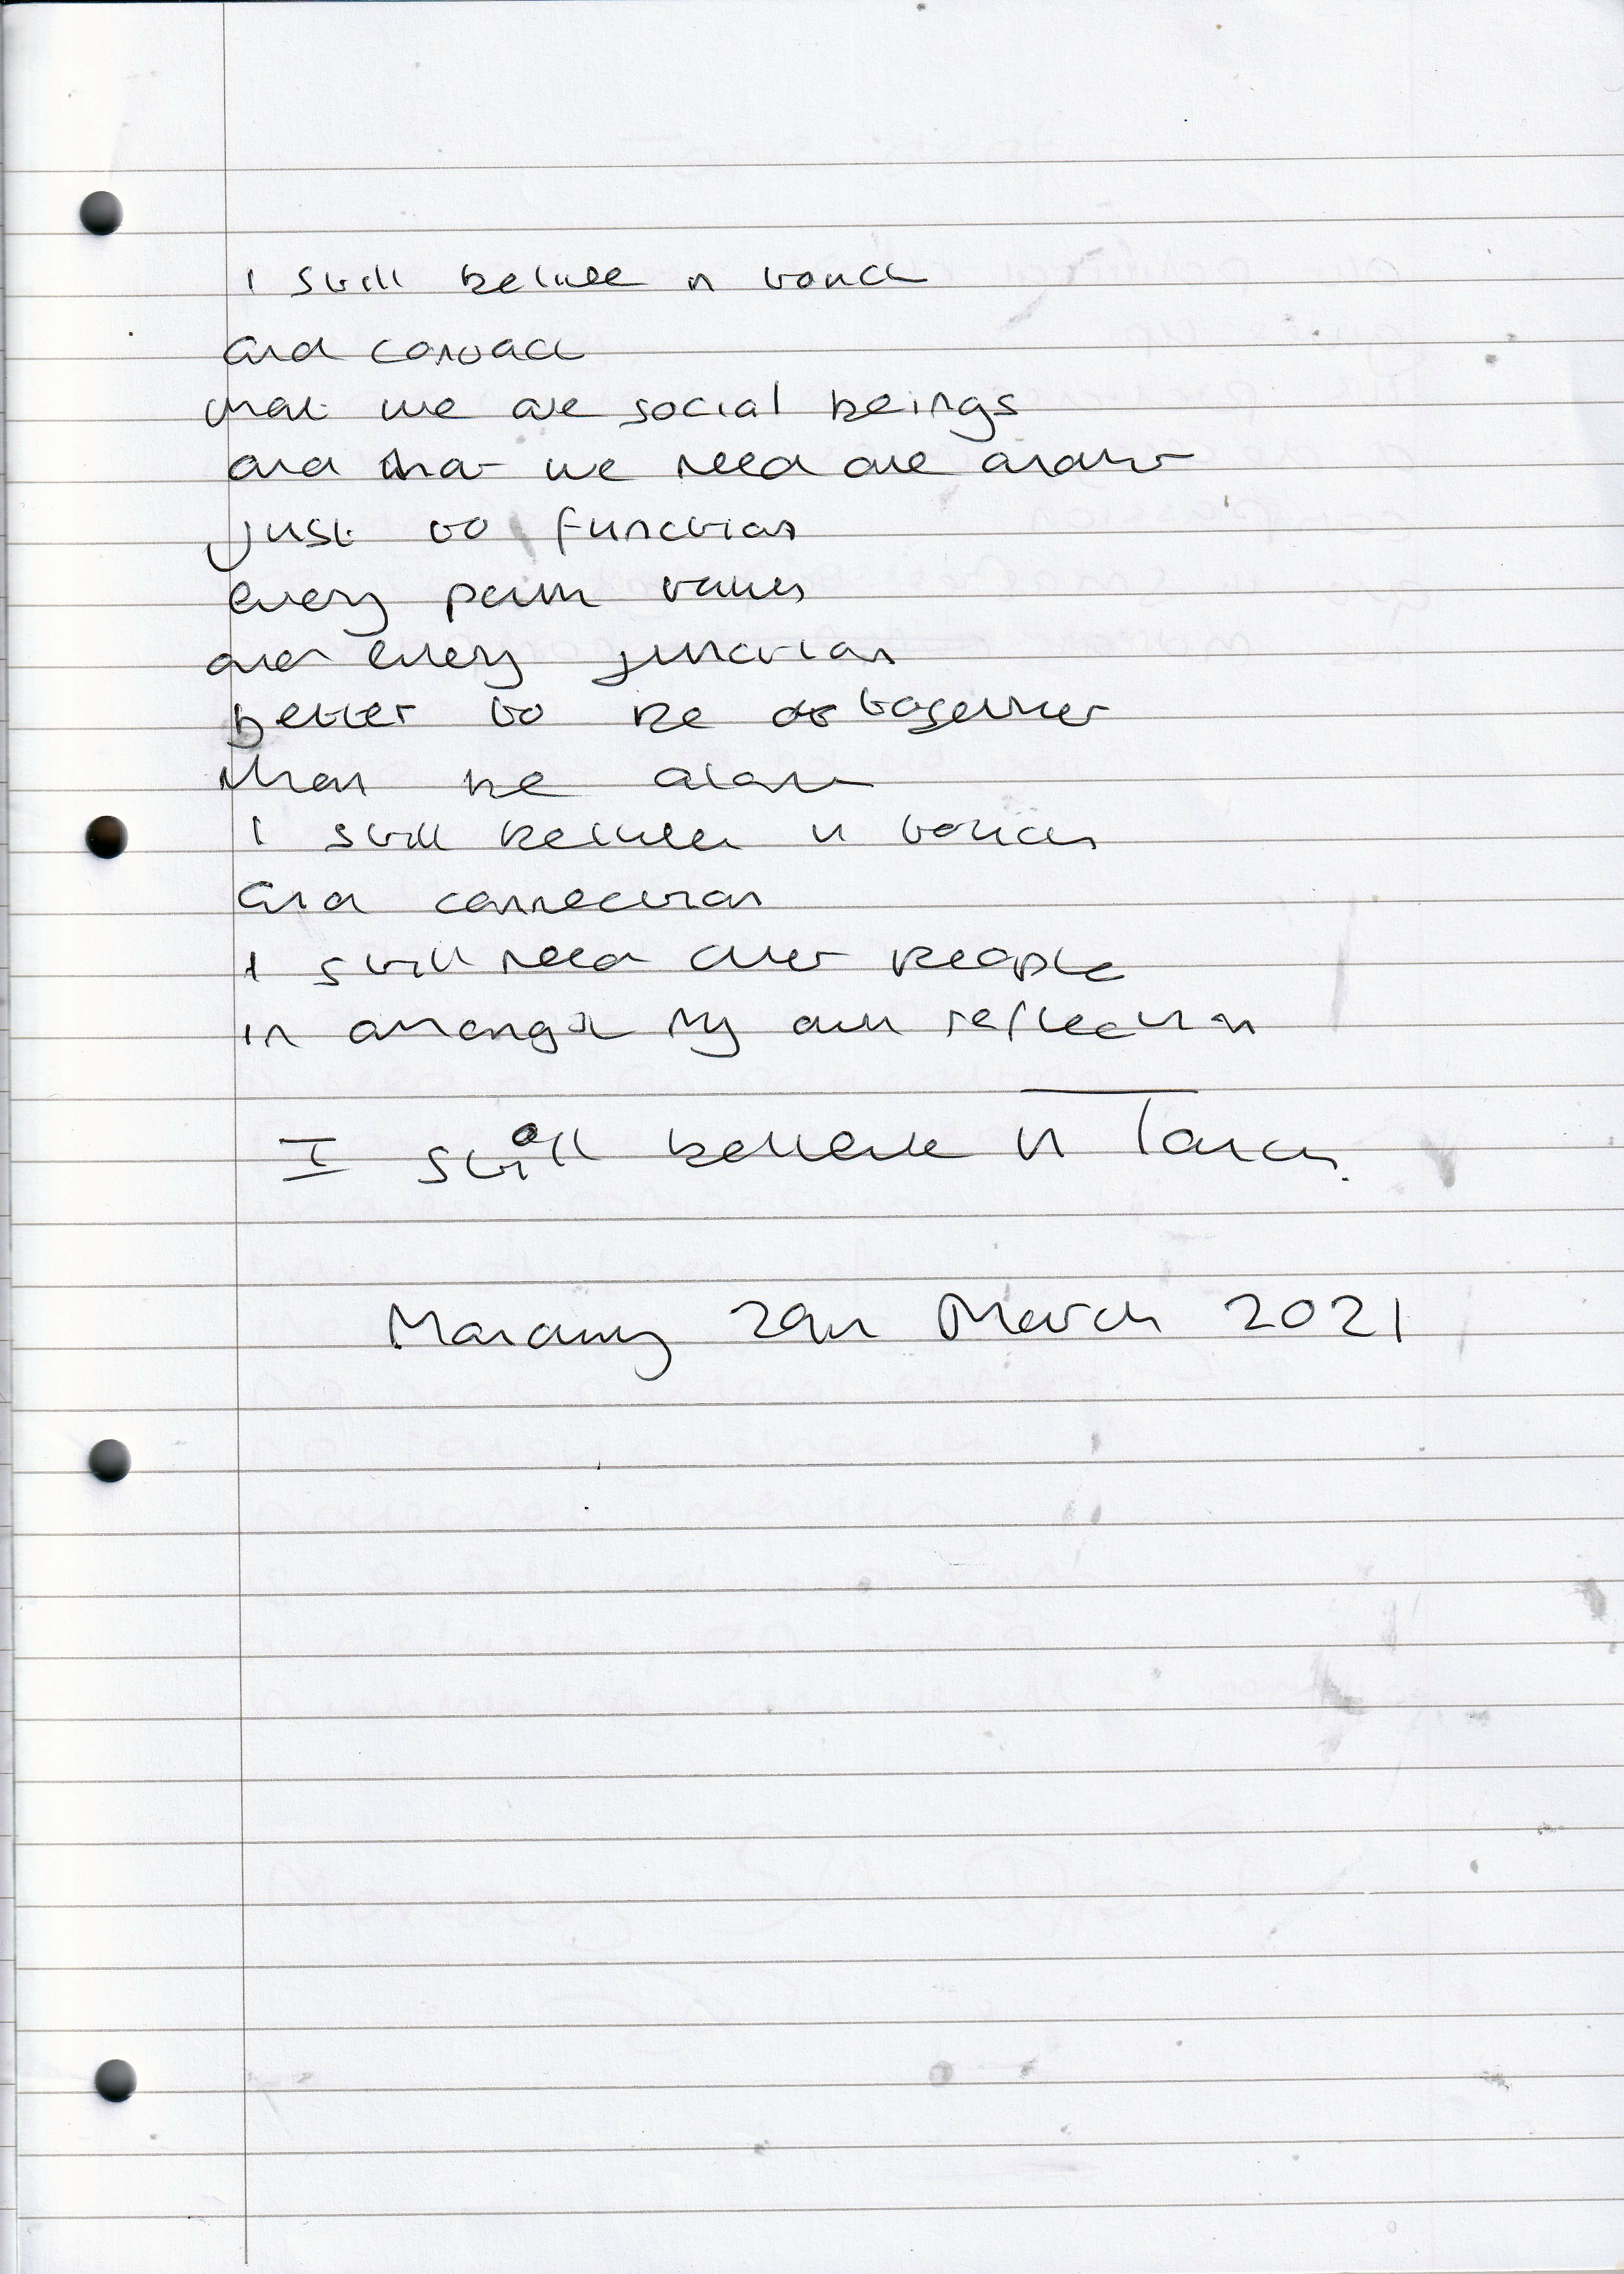 I still believe in touch
and contact
that we are social beings
and that we need one another
just to function
every path taken
and every junction
better to be together
than be alone
I still believe in touch
and connection
I still need other people
in amongst my own reflection
I still believe in Touch.
Monday 29th March 2021